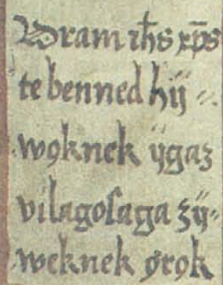 Wram ihs xp̄s
te benned hÿ =
wǫknek ÿgaz
vilagosaga zÿ=
wǫknek ǫrǫk